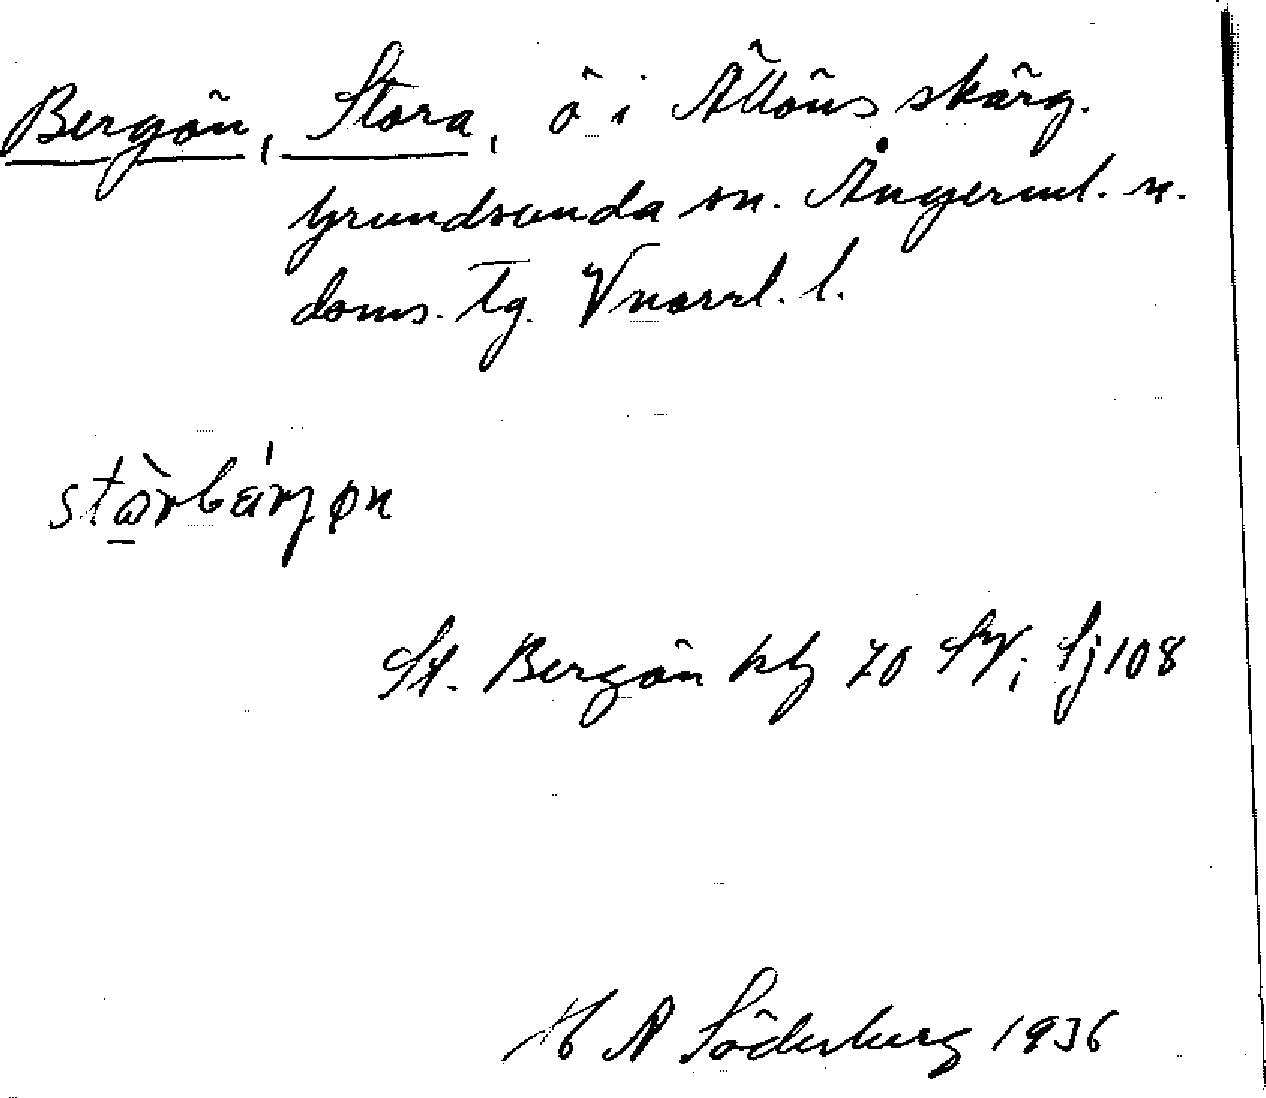 Bergön, Stora, ö i Ällöns skärg.
Grundsunda sn. Ångerml. n.
doms. Tg. Vnorrl. l.
stò̱rbǽrjøn
St. Bergön kbl 70 SV; Sj 108
H A Söderberg 1936